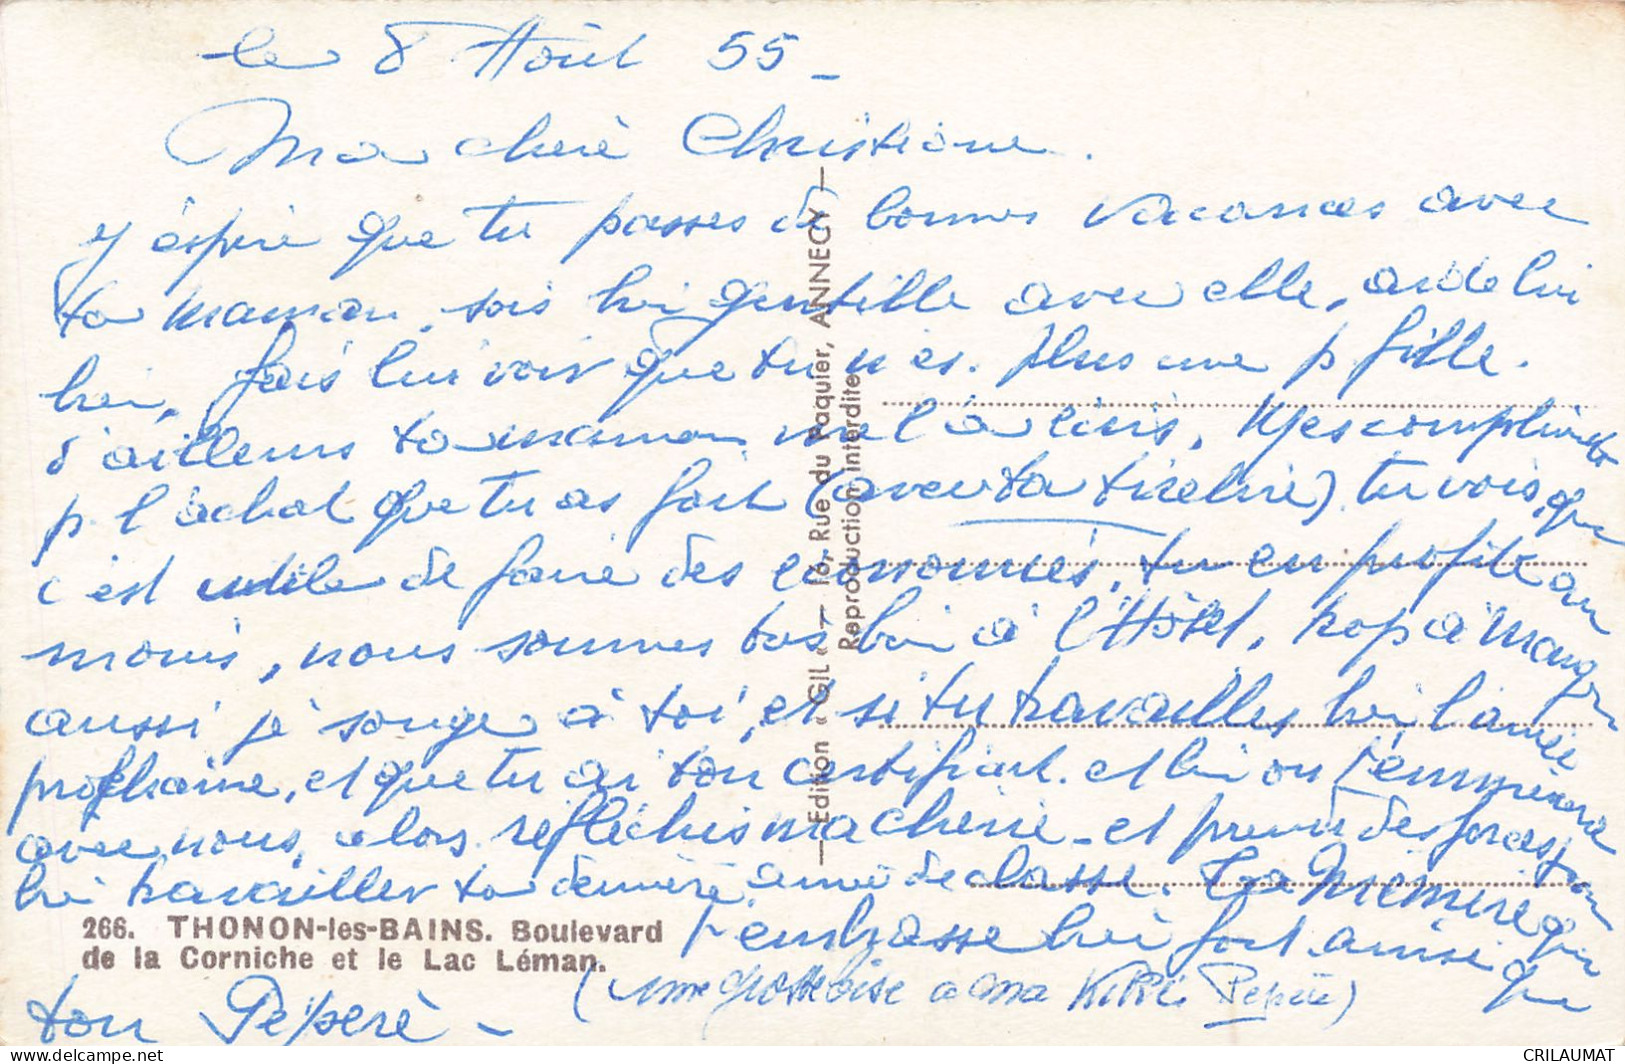 le 8 Août 55 -
Ma cheré Christiane.
J'éspére que tu passes de bonnes vacances avec
ta maman, sois bi gentille avec elle, aide la bi
bien, fais lui voir que tu n'es plus une p fille.
d'ailleurs ta maman me l'a écris, Mes compliments
p. l'achat que tu as fait (avec ta tirelire) tu vois, que
c'est utile de faire des économies, tu en profite au
moins, nous sommes tres bien à l'Hôtel, trop à manger
aussi je songe à toi, et si tu travailles bien l'année
prochaine, et que tu ai ton certificat. et bien on t'emmènera
avec nous, alors réfléchis ma cherie - et prend des forces pour
bien travailler ta derniere année de classe. Ta Mémère qui
t'embrasse bien fort ainsi que
ton Pépéré -
(une grosse bise a ma Kiki Pépère)
266. THONON-les-BAINS. Boulevard
de la Corniche et le Lac Léman.
Edition « GIL » — 10, Rue du Paquier, ANNECY
Reproduction interdite
CRILAUMAT